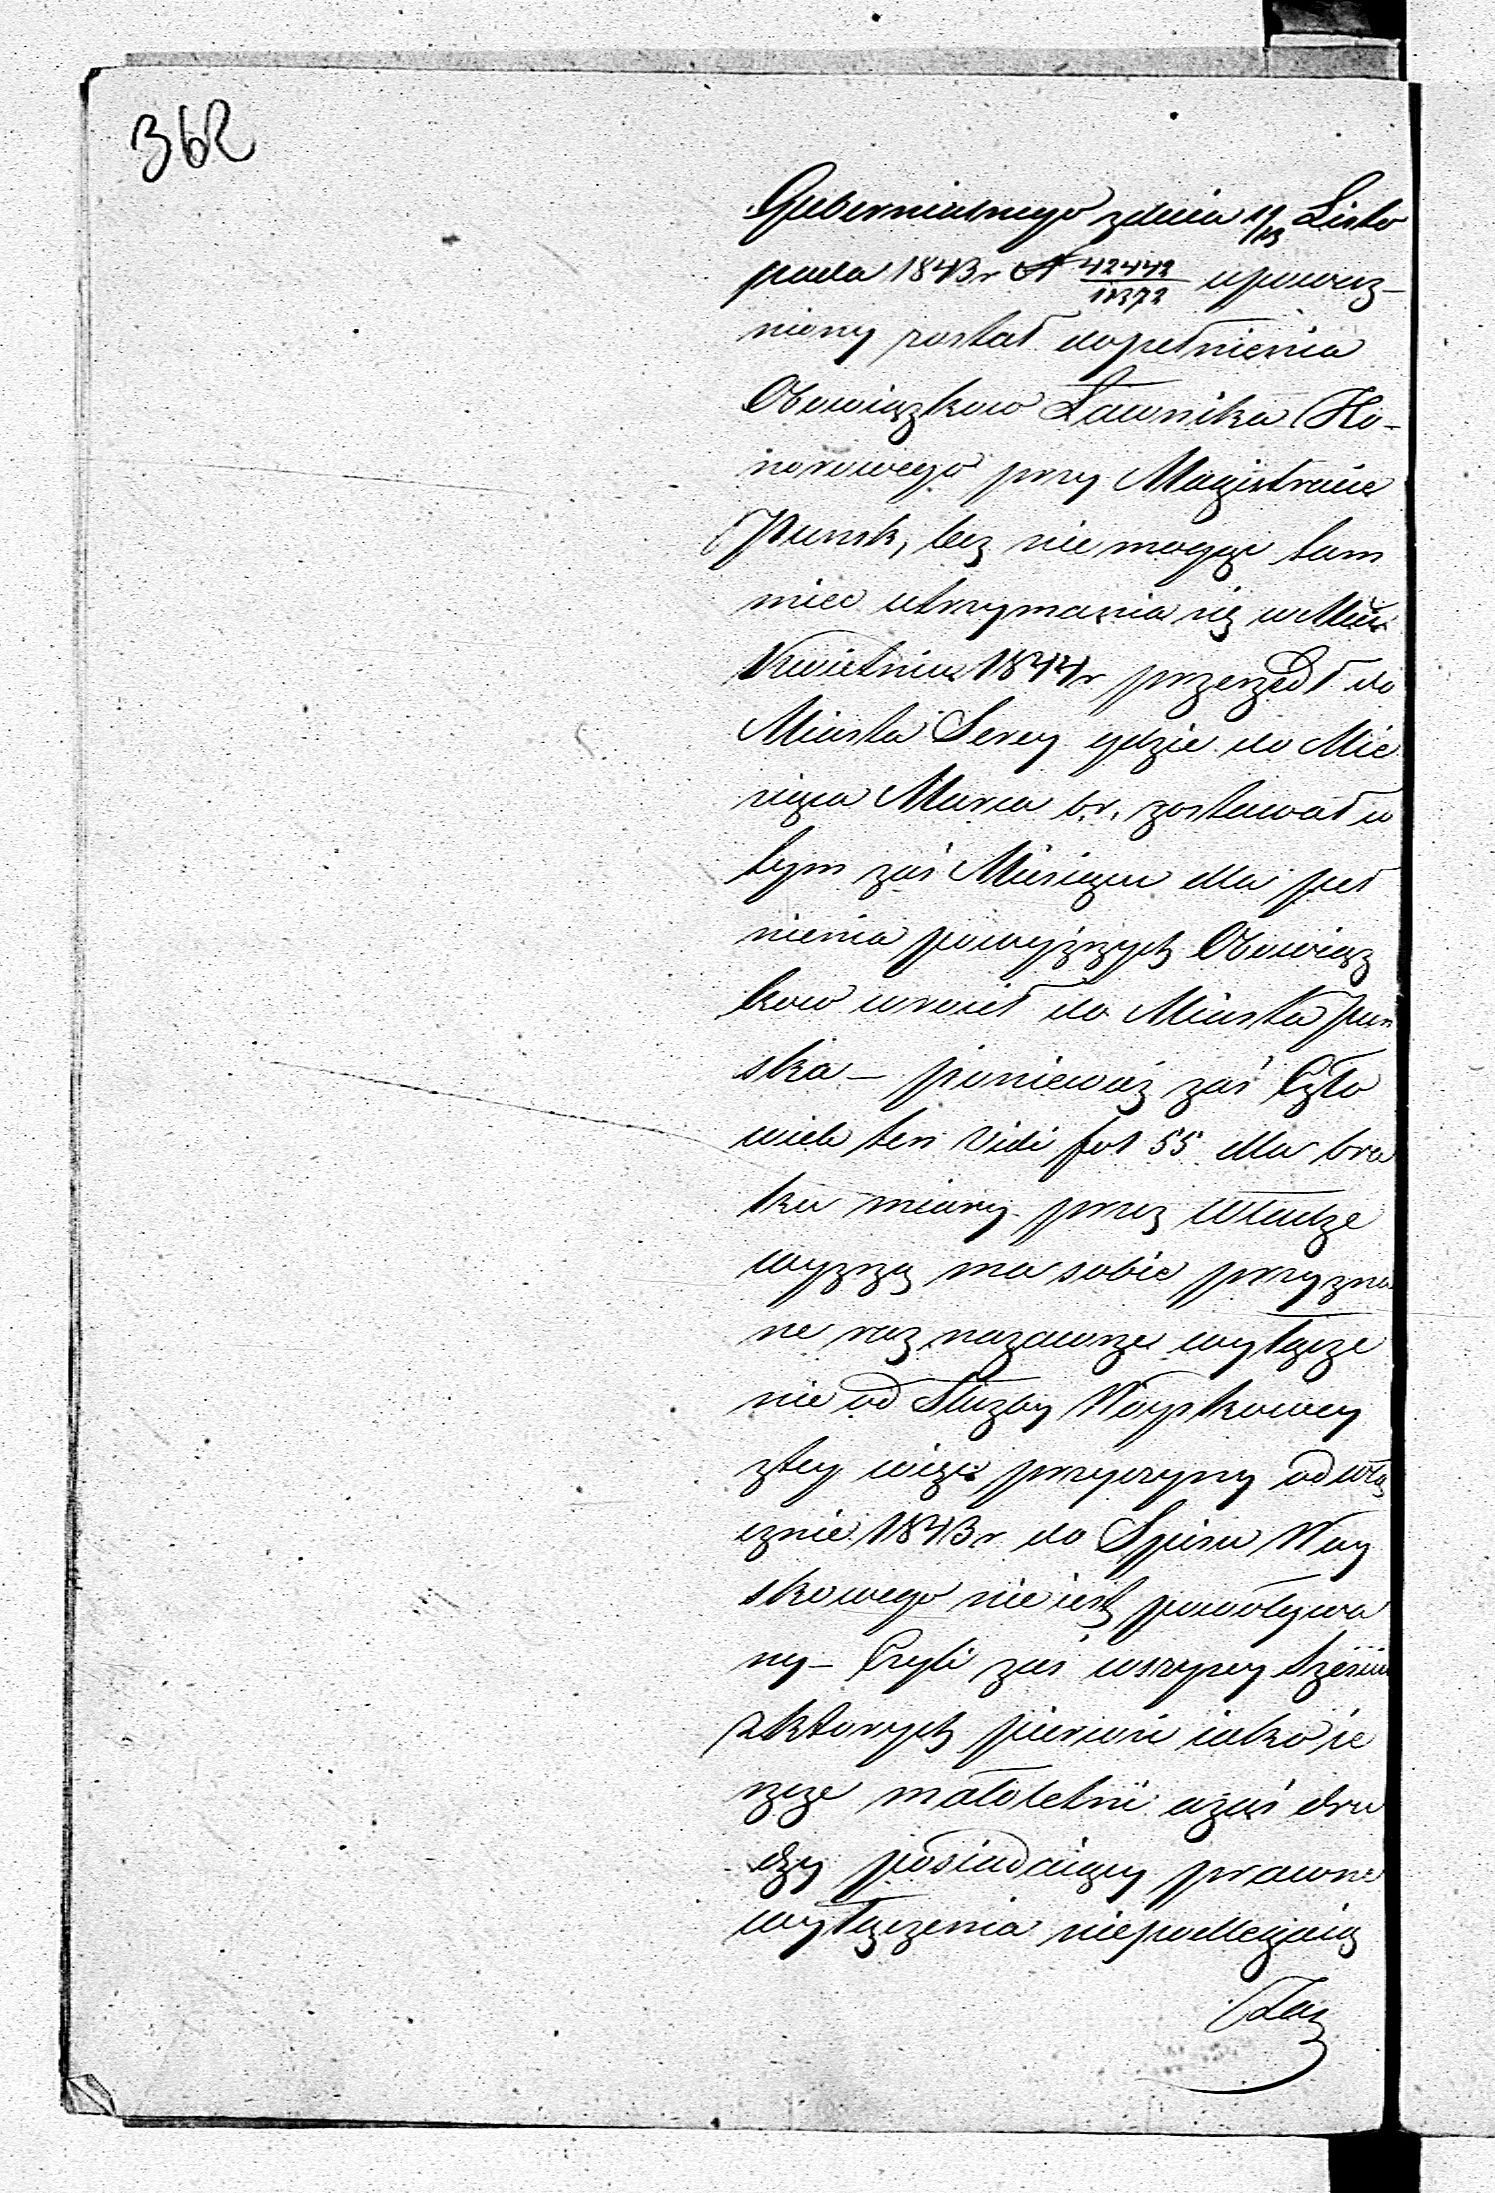 362
Gubernialnego z dnia 1/13 Listo
pada 1843 r N 42442/11372 upoważ-
niony został do pełnienia
Obowiązkow Ławnika Ho-
norowego przy Magistracie
Puńsk, lecz nie mogąc tam
miec utrzymania się w Mcu
Kwietniu 1844 r przeszedł do
Miasta Serey gdzie do Mie
siąca Marca b.r. zostawał w
tym zaś Miesiącu dla peł
nienia powyższych Obowiąz
kow wrócił do Miasta Puń
ska – ponieważ zaś Czło
wiek ten Vidi fol 55 dla bra
ku miary przez Władze
wyższą ma sobie przyzna
ne raz nazawsze wyłącze
nie od Służby Woyskowey
z tey więc przyczyny od włą
cznie 1843 r do Spisu Woy
skowego nie iest powoływa
ny – Czyli zaś wszyscy
z ktorych pierwsi iako ie
szcze małoletni a zaś dru
dzy posiadaiący prawne
wyłączenia niepodlegaią
Zaś